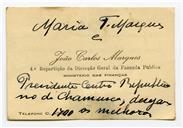 Maria T. Marques
e
João Carlos Marques
4.ª Repartição da Direcção Geral da Fazenda Pública
MINISTÉRIO DAS FINANÇAS
Presidente Centro Republica
no de Chamusca,
TELEFONE os melhores